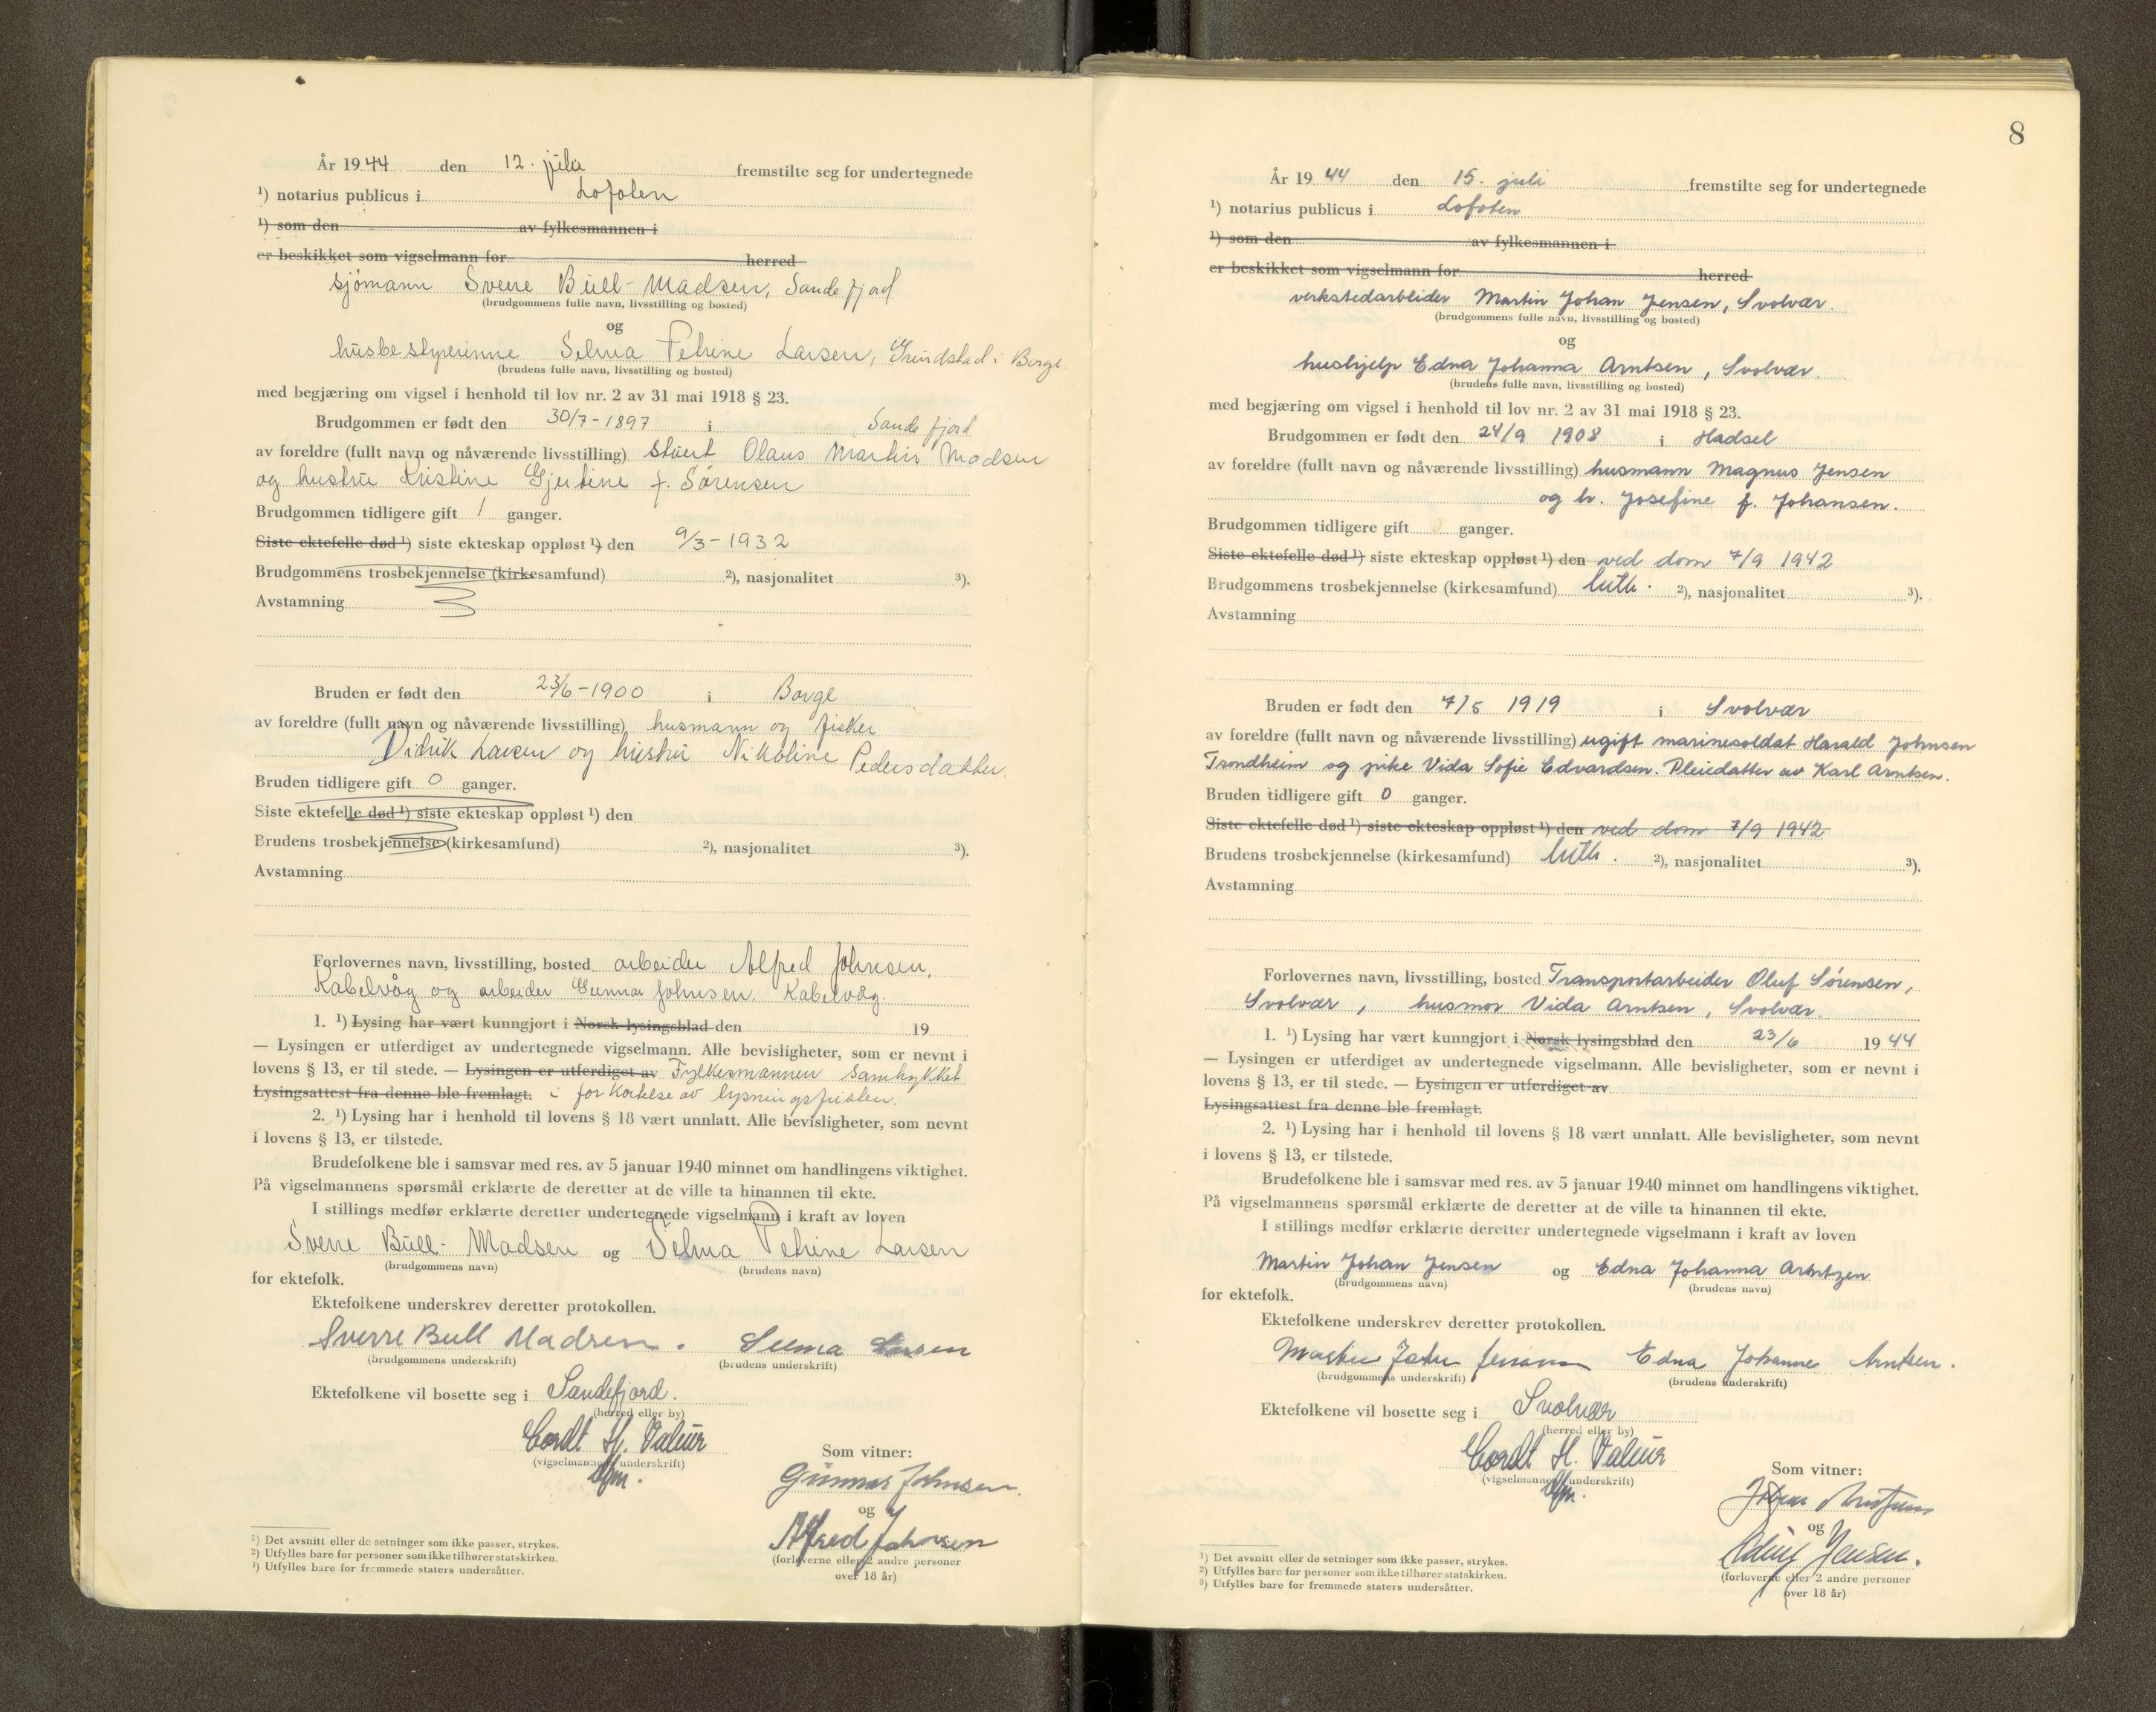 År 1944 den 12. juli fremstilte seg for undertegnede
¹) notarius publicus i Lofoten
¹) som den av fylkesmannen i
er beskikket som vigselmann for herred
sjömann Sverre Bull-Madsen, Sandefjord
(brudgommens fulle navn, livsstilling og bosted)
og
husbestyrerinne Selma Petrine Larsen, Grundstad i Borge
(brudens fulle navn, livsstilling og bosted)
med begjæring om vigsel i henhold til lov nr. 2 av 31 mai 1918 § 23.
Brudgommen er født den 30/7-1897 i Sandefjord
av foreldre (fullt navn og nåværende livsstilling) stuert Olaus Martin Madsen
og hustru Kristine Gjertine f. Sørensen
Brudgommen tidligere gift 1 ganger.
Siste ektefelle død ¹) siste ekteskap oppløst ¹) den 9/3-1932
Brudgommens trosbekjennelse (kirkesamfund) ²), nasjonalitet ³).
Avstamning
Bruden er født den 23/6-1900 i Borge
av foreldre (fullt navn og nåværende livsstilling) husmann og fisker
Didrik Larsen og hustru Nikoline Pedersdatter.
Bruden tidligere gift 0 ganger.
Siste ektefelle død ¹) siste ekteskap oppløst ¹) den
Brudens trosbekjennelse (kirkesamfund) ²), nasjonalitet ³).
Avstamning
Forlovernes navn, livsstilling, bosted arbeider Alfred Johnsen,
Kabelvåg og arbeider Gunnar Johnsen, Kabelvåg.
1. ¹) Lysing har vært kunngjort i Norsk lysingsblad den 19
— Lysingen er utferdiget av undertegnede vigselmann. Alle bevisligheter, som er nevnt i
lovens § 13, er til stede. — Lysingen er utferdiget av Fylkesmannen samtykket
Lysingsattest fra denne ble fremlagt. i forkortelse av lysningsfristen.
2. ¹) Lysing har i henhold til lovens § 18 vært unnlatt. Alle bevisligheter, som nevnt
i lovens § 13, er tilstede.
Brudefolkene ble i samsvar med res. av 5 januar 1940 minnet om handlingens viktighet.
På vigselmannens spørsmål erklærte de deretter at de ville ta hinannen til ekte.
I stillings medfør erklærte deretter undertegnede vigselmann i kraft av loven
Sverre Bull-Madsen og Selma Petrine Larsen
(brudgommens navn) (brudens navn)
for ektefolk.
Ektefolkene underskrev deretter protokollen.
Sverre Bull Madsen. Selma Larsen
(brudgommens underskrift) (brudens underskrift)
Ektefolkene vil bosette seg i Sandefjord.
(herred eller by)
Cordt H. Valeur
(vigselmannens underskrift)
Som vitner:
Gunnar Johnsen.
og
Alfred Johnsen
(forloverne eller 2 andre personer
over 18 år)
¹) Det avsnitt eller de setninger som ikke passer, strykes.
²) Utfylles bare for personer som ikke tilhører statskirken.
³) Utfylles bare for fremmede staters undersåtter.
8
År 1944 den 15. juli fremstilte seg for undertegnede
¹) notarius publicus i Lofoten
¹) som den av fylkesmannen i
er beskikket som vigselmann for herred
verkstedarbeider Martin Johan Jensen, Svolvær.
(brudgommens fulle navn, livsstilling og bosted)
og
hushjelp Edna Johanna Arntsen, Svolvær.
(brudens fulle navn, livsstilling og bosted)
med begjæring om vigsel i henhold til lov nr. 2 av 31 mai 1918 § 23.
Brudgommen er født den 24/9 1908 i Hadsel
av foreldre (fullt navn og nåværende livsstilling) husmann Magnus Jensen
og h. Josefine f. Johansen.
Brudgommen tidligere gift 0 ganger.
Siste ektefelle død ¹) siste ekteskap oppløst ¹) den ved dom 7/9 1942
Brudgommens trosbekjennelse (kirkesamfund) luth. ²), nasjonalitet ³).
Avstamning
Bruden er født den 7/5 1919 i Svolvær
av foreldre (fullt navn og nåværende livsstilling) ugift marinesoldat Harald Johnsen
Trondheim og pike Vida Sofie Edvardsen. Pleiedatter av Karl Arntsen.
Bruden tidligere gift 0 ganger.
Siste ektefelle død ¹) siste ekteskap oppløst ¹) den ved dom 7/9 1942
Brudens trosbekjennelse (kirkesamfund) luth. ²), nasjonalitet ³).
Avstamning
Forlovernes navn, livsstilling, bosted Transportarbeider Oluf Sørensen,
Svolvær, husmor Vida Arntsen, Svolvær.
1. ¹) Lysing har vært kunngjort i Norsk lysingsblad den 23/6 1944
— Lysingen er utferdiget av undertegnede vigselmann. Alle bevisligheter, som er nevnt i
lovens § 13, er til stede. — Lysingen er utferdiget av
Lysingsattest fra denne ble fremlagt.
2. ¹) Lysing har i henhold til lovens § 18 vært unnlatt. Alle bevisligheter, som nevnt
i lovens § 13, er tilstede.
Brudefolkene ble i samsvar med res. av 5 januar 1940 minnet om handlingens viktighet.
På vigselmannens spørsmål erklærte de deretter at de ville ta hinannen til ekte.
I stillings medfør erklærte deretter undertegnede vigselmann i kraft av loven
Martin Johan Jensen og Edna Johanna Arntzen
(brudgommens navn) (brudens navn)
for ektefolk.
Ektefolkene underskrev deretter protokollen.
Martin Johan Jensen Edna Johanne Arntsen.
(brudgommens underskrift) (brudens underskrift)
Ektefolkene vil bosette seg i Svolvær
(herred eller by)
Cordt H. Valeur
(vigselmannens underskrift)
Som vitner:
og
Jensen.
(forloverne eller 2 andre personer
over 18 år)
¹) Det avsnitt eller de setninger som ikke passer, strykes.
²) Utfylles bare for personer som ikke tilhører statskirken.
³) Utfylles bare for fremmede staters undersåtter.